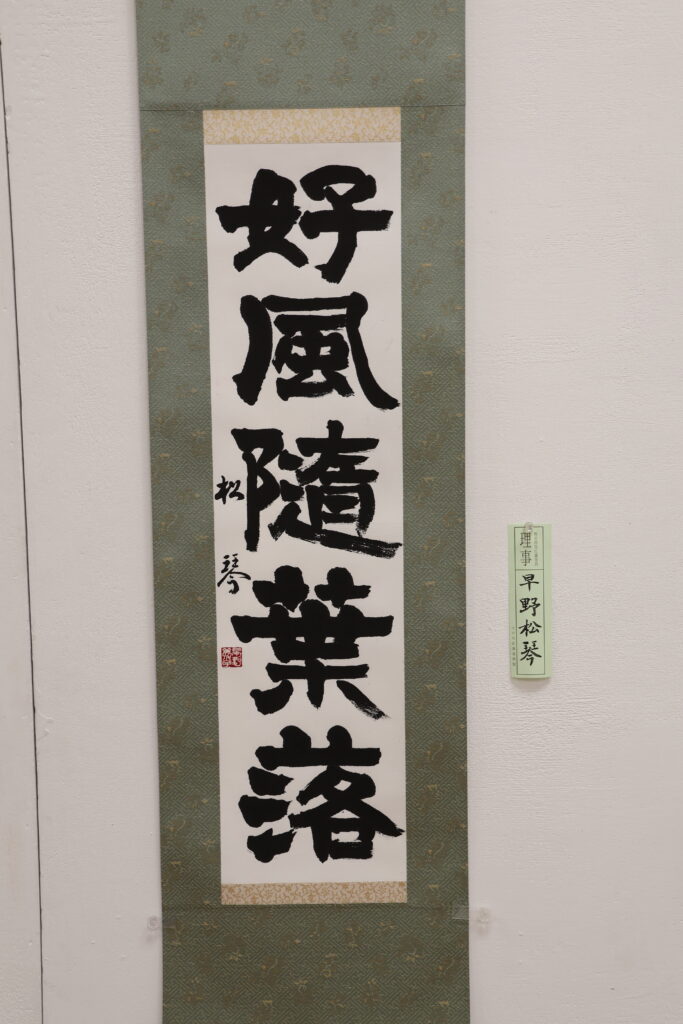 好風隨葉落
松琴
理事
早野松琴